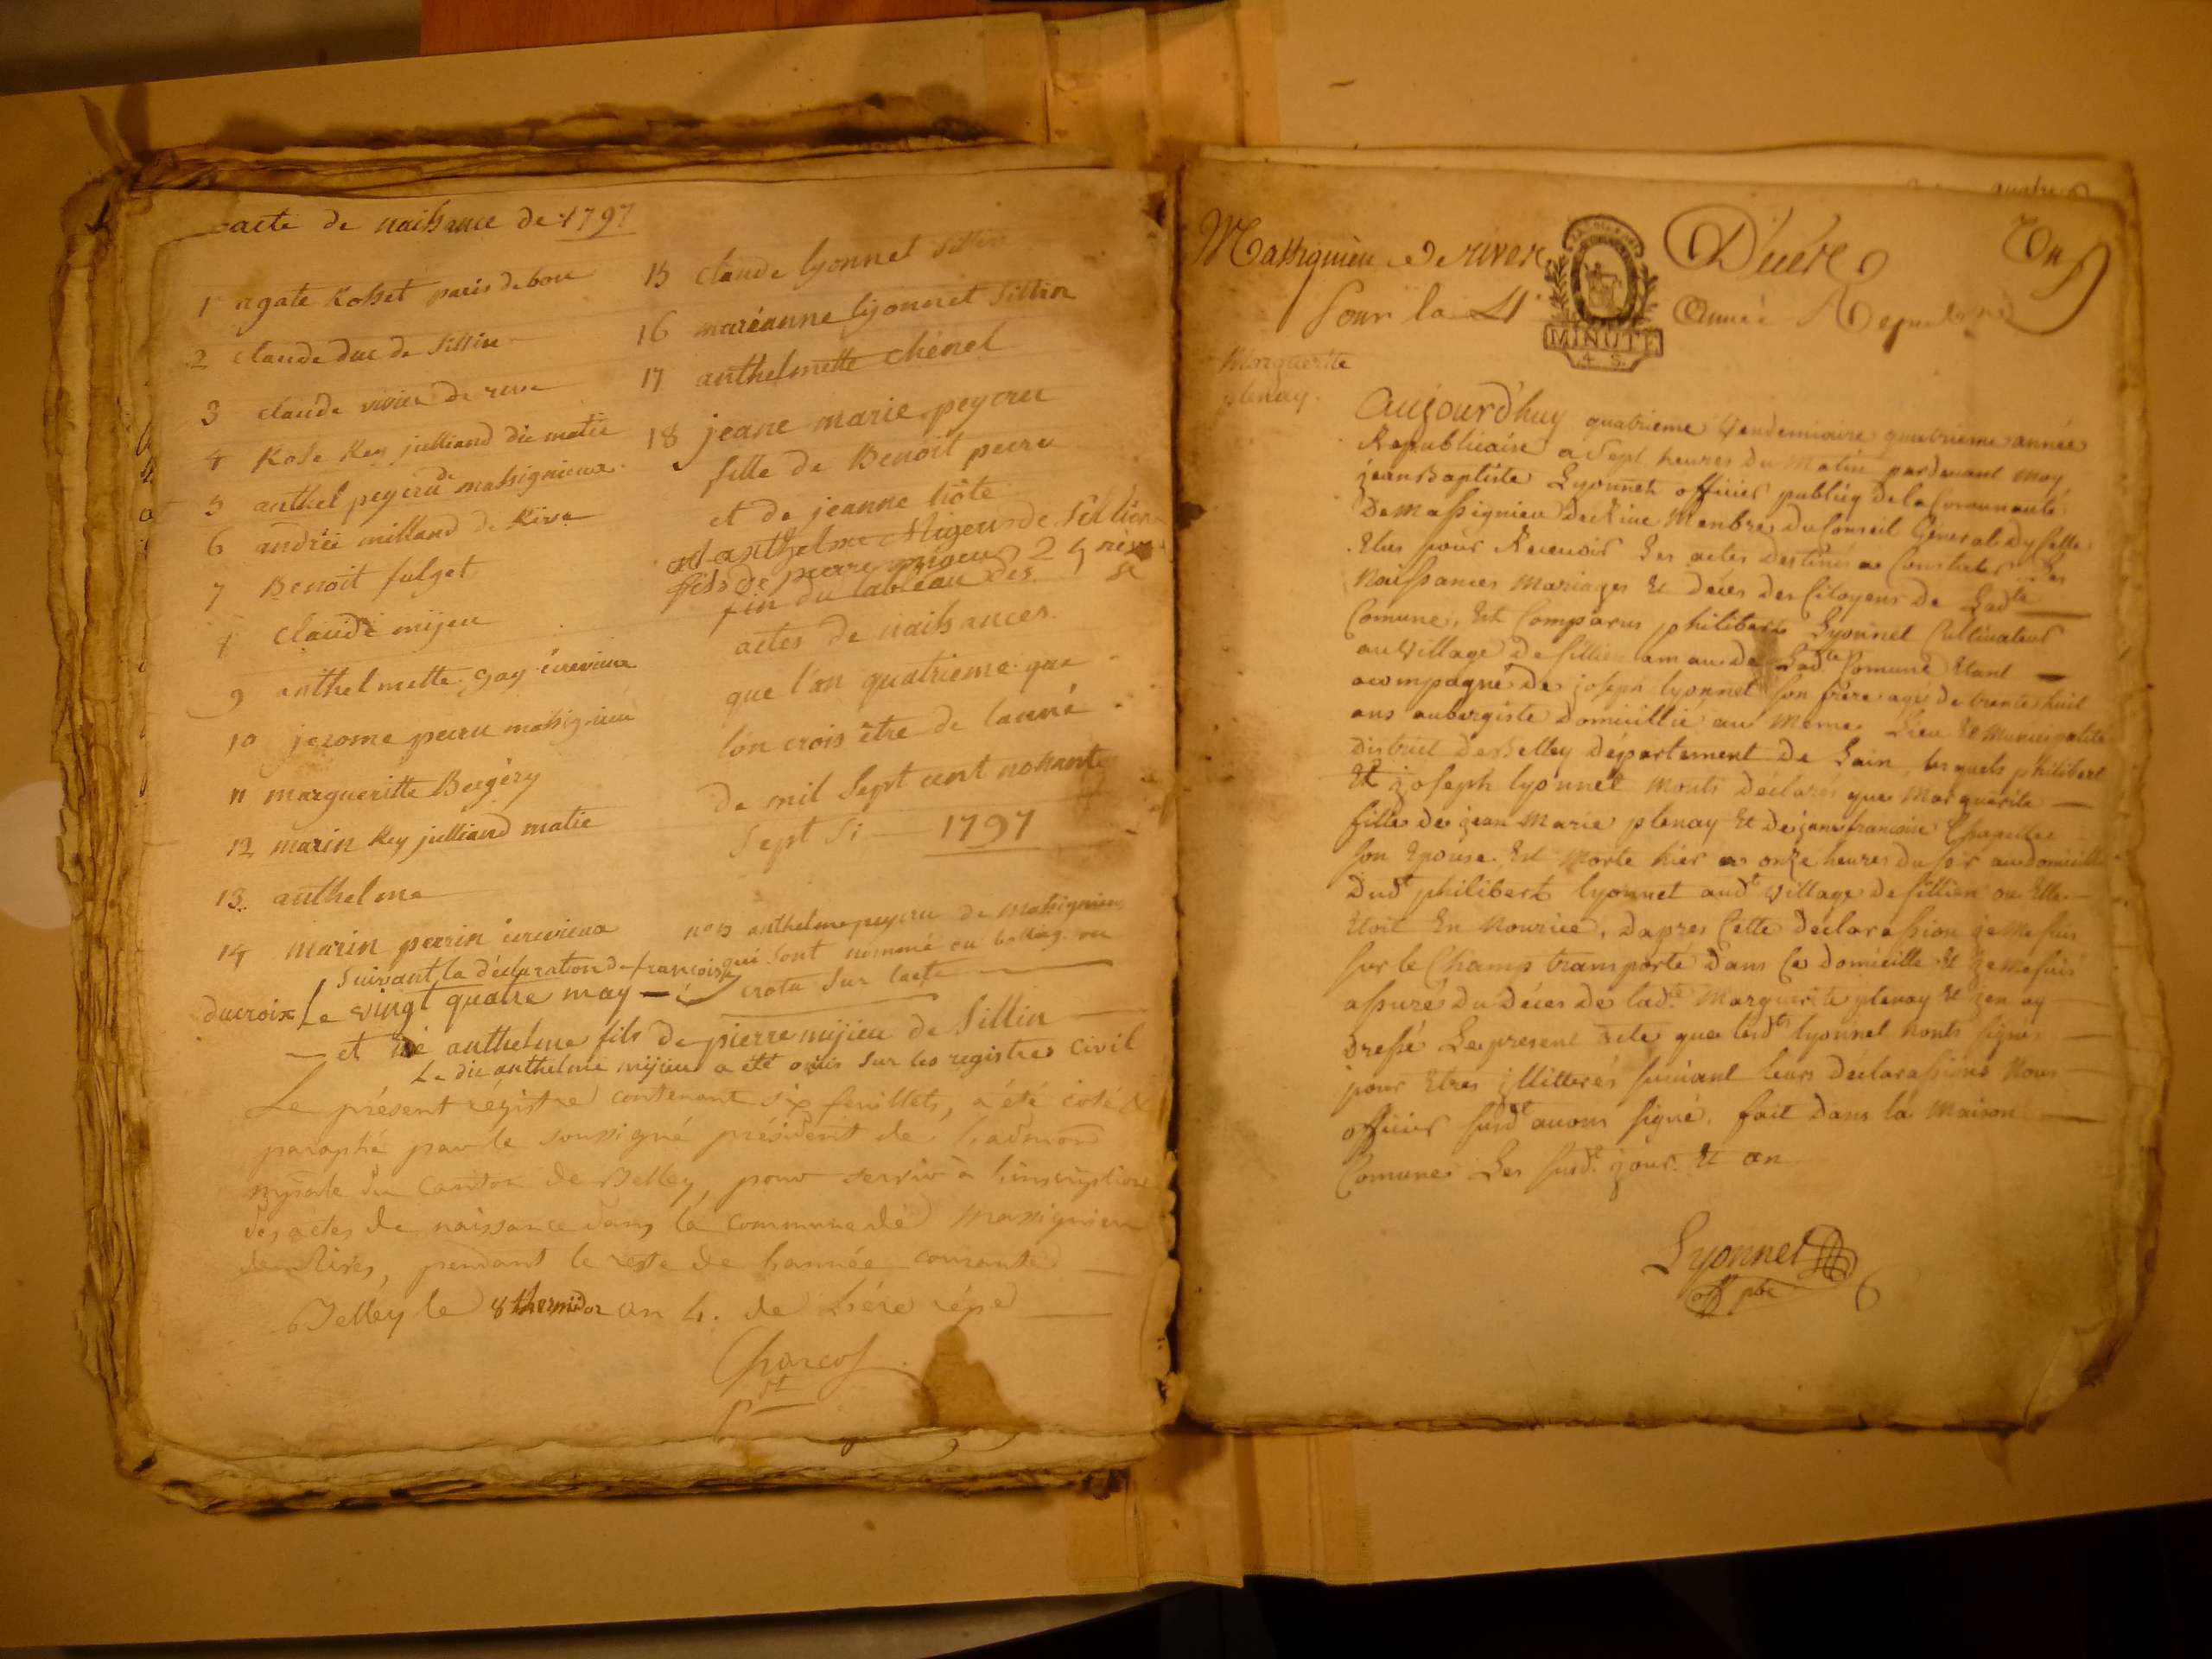 acte de naissance de 1797
1 agate Rosset paris de bou
2 claude duc de Sillin
3 claude vivier de rive
4 Rose Rey julliand dit matie
5 anthel peycru de massignieux
6 andréé milland de Rive
7 Benoit fulget
8 claude mijeu
9 anthelmette gay
10 jerome peecru massignieu
11 margueritte Bergéry
12 marin Rey julliand matie
13. anthelme
14 marin perrin
15 claude lyonnet Sillin
16 maréanne lyonnet Sillin
17 anthelmette chenel
18 jeane marie peycru
fille de Benoit pecru
et de jeanne hôte
anthelme Migeu de Sillien
fils de pierre migeu
fin du tableau des
actes de naissances
que l'on quatrieme que
l'on crois être de lanné
de mil sept cent nonante
Sept Si 1797
n° 13 anthelme peycru de massignieu
qui sont nommé ou
sur lacte
Suivant la déclaration de francois
ducroix Le vingt quatre may
et né anthelme fils de pierre mijieu de Sillin
Le dit anthelme mijieu a été omis sur les registres civil
Le présent régistre contenant six feuillets, a été coté &
paraphé par le soussigné président de l'admon
mpale du canton de Belley, pour servir à l'inscription
des actes de naissance dans la commune de Massignieu
de Rives, pendant le reste de l'année courante
Belley le 8 thermidor an 4. de l'ére répe
Charcot
pdt
Massignieu de rives Décéts Un
Pour la 4e Année Repub
MINUTE
4. S.
Marguerite
plenay.
Aujourd'huy quatrieme Vendemiaire quatrieme année
Republicaine a Sept heures du Matin pardevant moy
jean Baptiste Lyonnet officier publicq de la Commauté
De massignieu de Rive Menbre du Conseil Général dy Celle
Elus pour Recevoir Les actes destinés a Constater Les
Naissances Mariages Et décès des Citoyens de Ladte
Comune, Est Comparus philibert Lyonnet Cultivateur
au village de sillien de Ladte Comune Etant
acompagné de joseph lyonnet son frere agé de trante huit
ans aubergiste domicillié au Meme Lieu Et Municipalité
district de Belley département de Lain, lesquels philibert
Et joseph lyonnet Monts déclaré que Marguerite
fille de jean Marie plenay Et de jane francoise Chapelle
son Epouse Est Morte hier a onze heures du soir au domicille
Dudt philibert lyonnet audt village de sillien ou Elle
Etoit En Nourice, dapres Cette déclarassion je me suis
sur le Champ transporté dans Ce domicille Et je me suis
assuré du déces de ladte Marguerite plenay Et jen ay
dressé Le present acte que lesdts lyonnet nonts signé
pour Etres jllitterés suivant leurs déclarassions Nous
officier susdt avons signé, fait dans la Maison
Comune Les susdt jour Et an
Lyonnet
off pbc